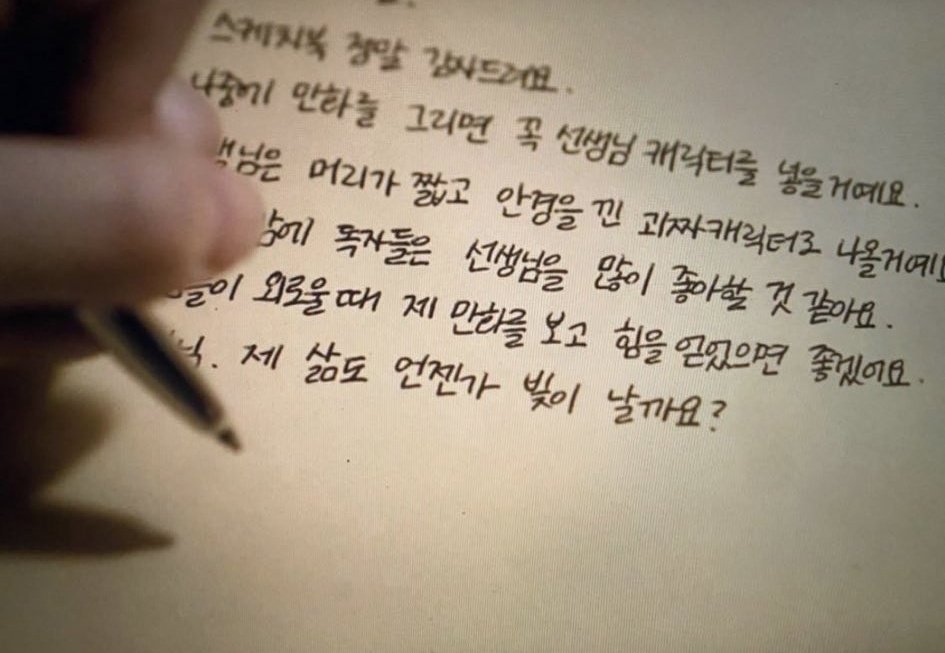 스케치북 정말 감사드려요.
나중에 만화를 그리면 꼭 선생님 캐릭터를 넣을거예요.
머리가 짧고 안경을 낀 괴짜캐릭터로 나올거예요
독자들은 선생님을 많이 좋아할 것 같아요.
외로울때 제 만화를 보고 힘을 얻었으면 좋겠어요.
제 삶도 언젠가 빛이 날까요?